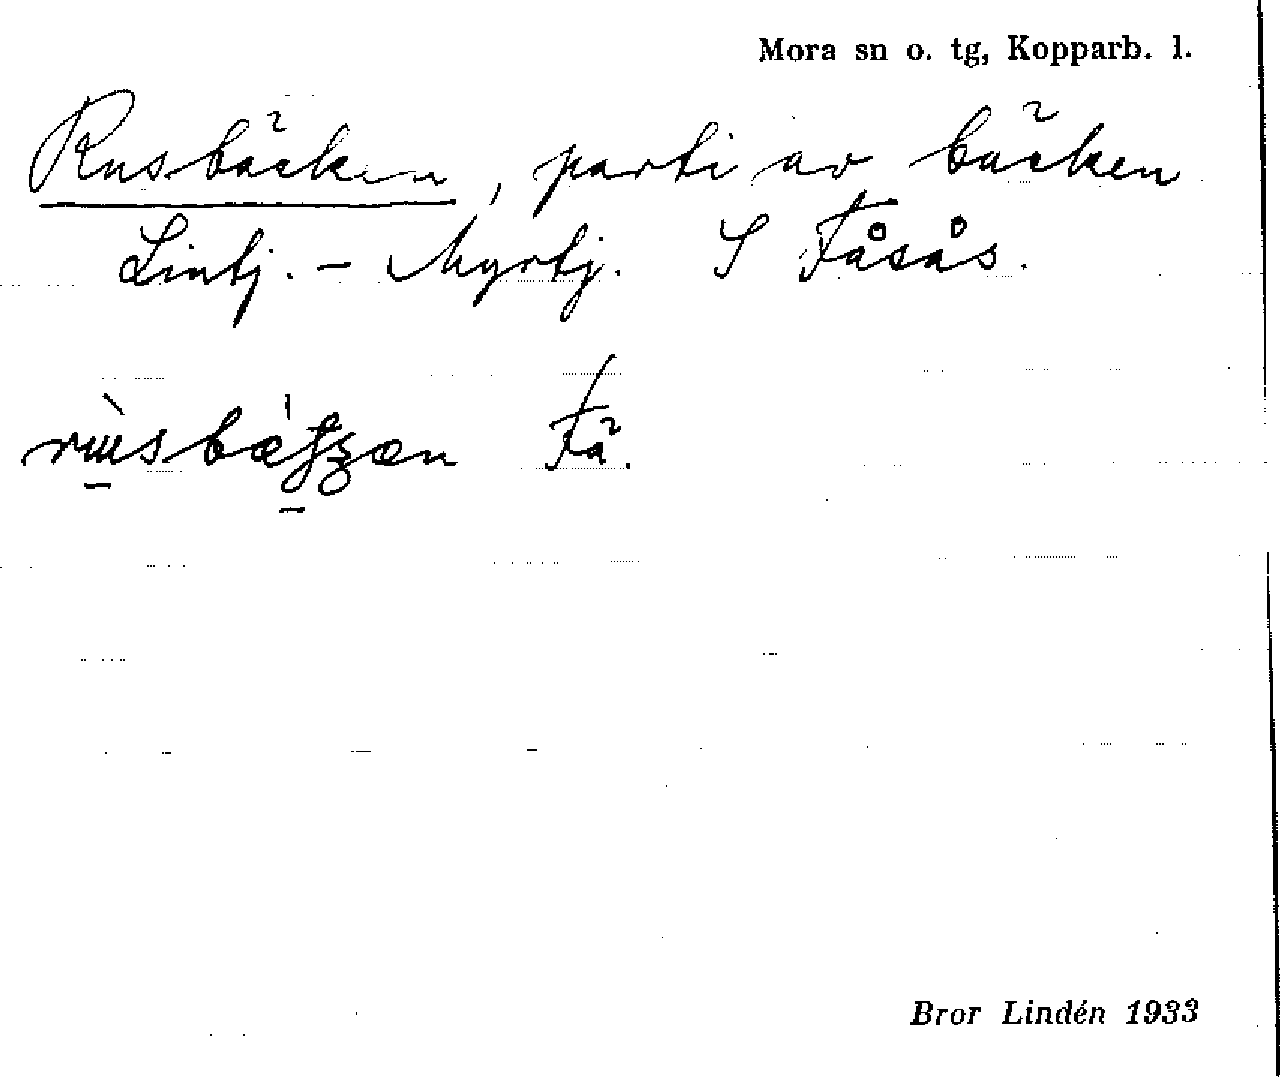 Mora sn o. tg, Kopparb. l.
Rusbäcken, parti av bäcken
Lintj. – Myrtj. S Fåsås.
Få.
Bror Lindén 1933